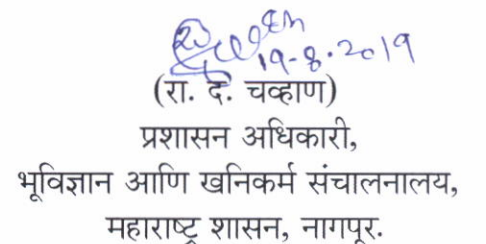 19-8-2019
(रा. दे. चव्हाण)
प्रशासन अधिकारी,
भूविज्ञान आणि खनिकर्म संचालनालय,
महाराष्ट्र शासन, नागपूर.